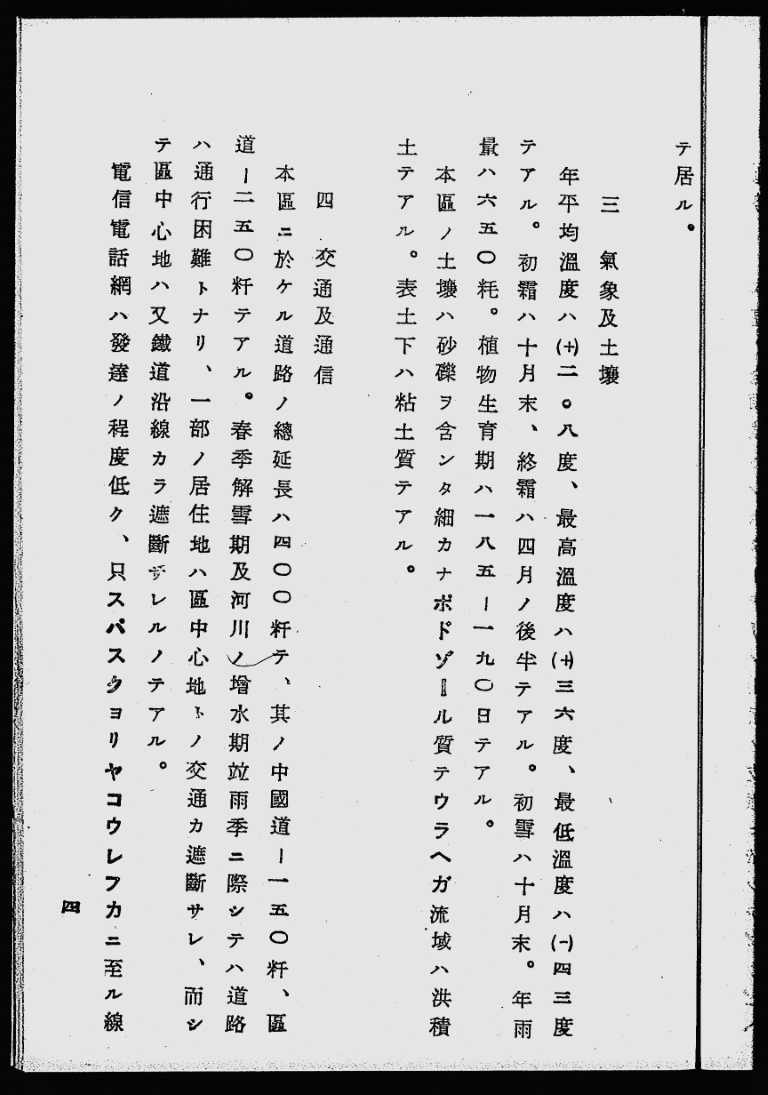 テ居ル。
三 氣象及土壤
年平均溫度ハ(+)二。八度、最高溫度ハ(+)三六度、最低溫度ハ(一)四三度
テアル。初霜ハ十月末、終霜ハ四月ノ後半テアル。初雪ハ十月末。年雨
量ハ六五〇粍。植物生育期ハ一八五ー一九〇日テアル。
本區ノ土壤ハ砂礫ヲ含ンタ細カナポドゾール質テウラヘガ流域ハ洪積
土テアル。表土下ハ粘土質テアル。
四 交通及通信
本區ニ於ケル道路ノ總延長ハ四〇〇粁テ、其ノ中國道ー一五〇粁、區
道ー二五〇粁テアル。春季解雪期及河川ノ增水期竝雨季ニ際シテハ道路
ハ通行困難トナリ、一部ノ居住地ハ區中心地トノ交通カ遮斷サレ、而シ
テ區中心地ハ又鐵道沿線カラ遮斷サレルノテアル。
電信電話網ハ發達ノ程度低ク、只スパスクヨリヤコウレフカニ至ル線
四